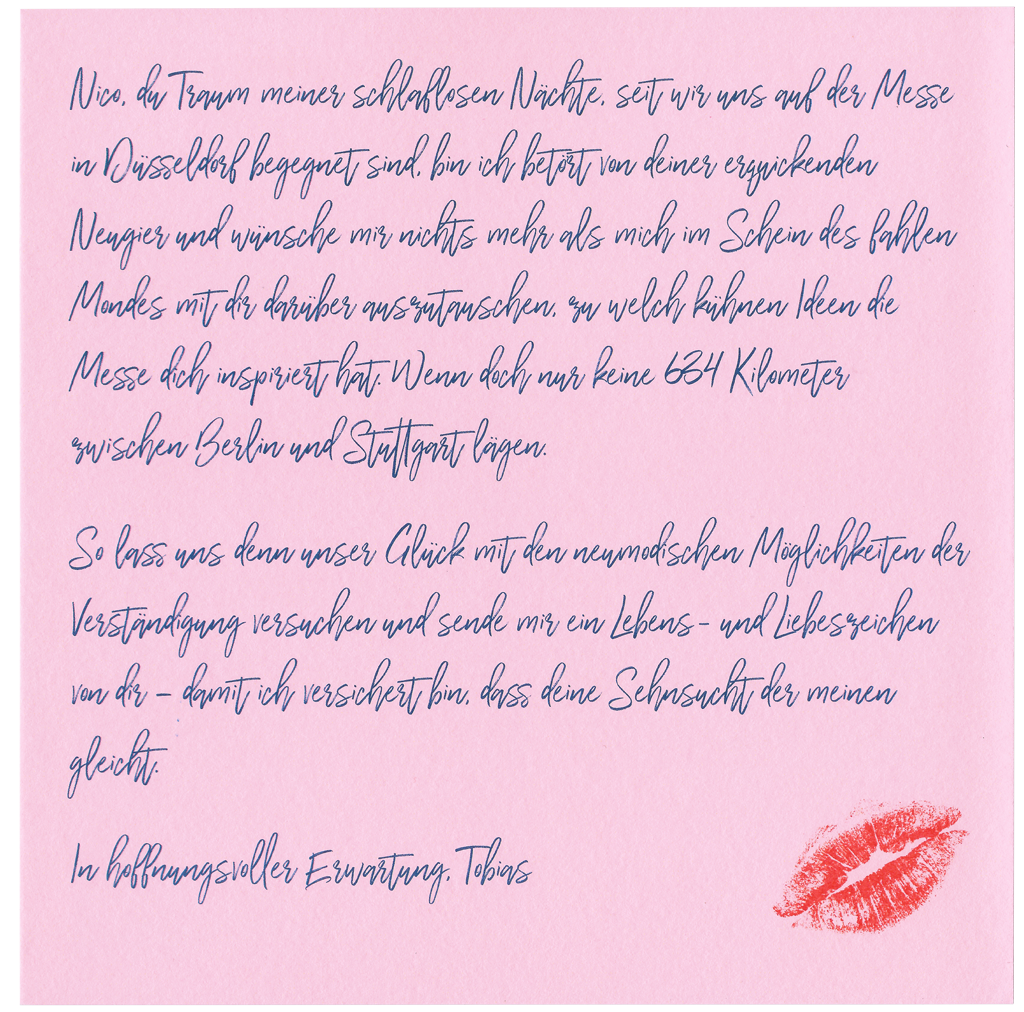 Nico, du Traum meiner schlaflosen Nächte, seit wir uns auf der Messe
in Düsseldorf begegnet sind, bin ich betört von deiner erquickenden
Neugier und wünsche mir nichts mehr als mich im Schein des fahlen
Mondes mit dir darüber auszutauschen, zu welch kühnen Ideen die
Messe dich inspiriert hat. Wenn doch nur keine 634 Kilometer
zwischen Berlin und Stuttgart lägen.
So lass uns denn unser Glück mit den neumodischen Möglichkeiten der
Verständigung versuchen und sende mir ein Lebens- und Liebeszeichen
von dir – damit ich versichert bin, dass deine Sehnsucht der meinen
gleicht.
In hoffnungsvoller Erwartung, Tobias